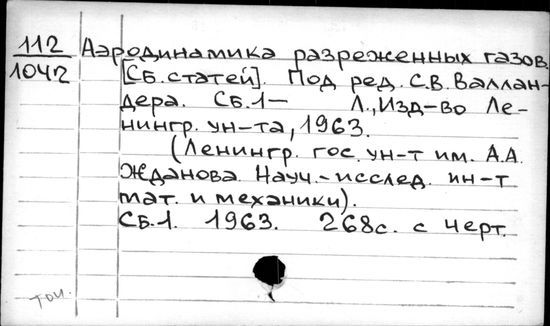 112 Аэродинамика разреженных газов.
1042 [Сб. статей]. Под ред. С.В. Валлан-
дера. Сб. 1— Л., Изд-во Ле-
нингр. ун-та, 1963.
(Ленингр. гос. ун-т им. А.А.
Жданова. Науч.-исслед. ин-т
мат. и механики).
Сб. 1. 1963. 268с. с черт.